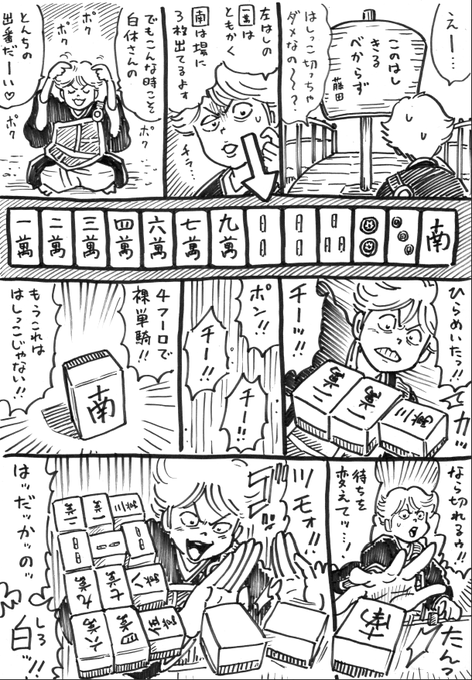 えー…
このはし
きる
べからず
藤田
はしっこ切っちゃ
ダメなの〜〜?
左はしの
一萬は
ともかく
南は場に
3枚出てるよす
チラ…
でもこんな時こそ
白休さんの
とんちの
出番だーい♡
ポク
ポク
ポク
ポク
一萬
二萬
三萬
四萬
六萬
七萬
九萬
南
ひらめいたっ!!
ピカッ
チーッ!!
二萬
一萬
三萬
ポン!!
チー!!
チー!!
4フーロで
裸単騎!!
もうこれは
はしっこじゃない!!
南
なら切れるゥ!
待ちを
変えてッ…!
たんっ
南
ツモォ!!
はッだッかッのッ
白ッ!!
しろ